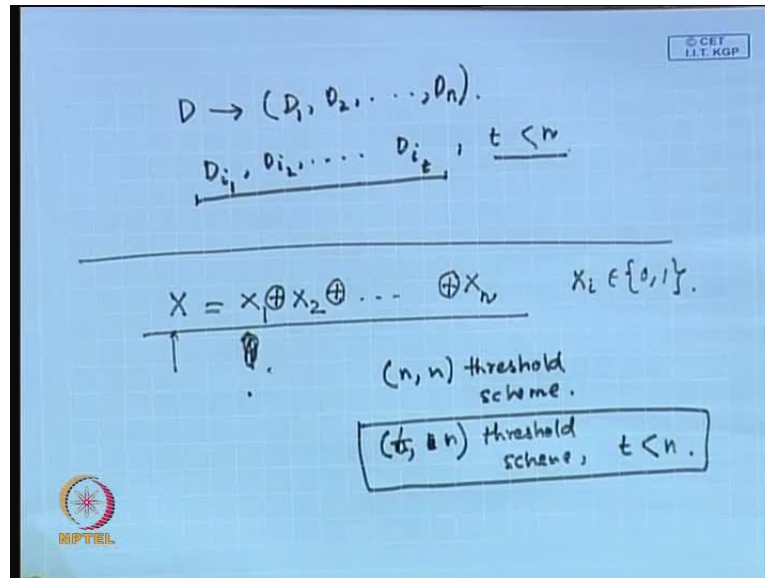 © CET
I.I.T. KGP
D → (D₁, D₂, . . . , Dₙ).
D_{i₁}, D_{i₂}, . . . . D_{i_t}, t < n
X = x₁ ⊕ x₂ ⊕ . . . ⊕ xₙ xᵢ ∈ {0,1}.
(n, n) threshold
scheme.
(t, n) threshold
scheme, t < n.
NPTEL